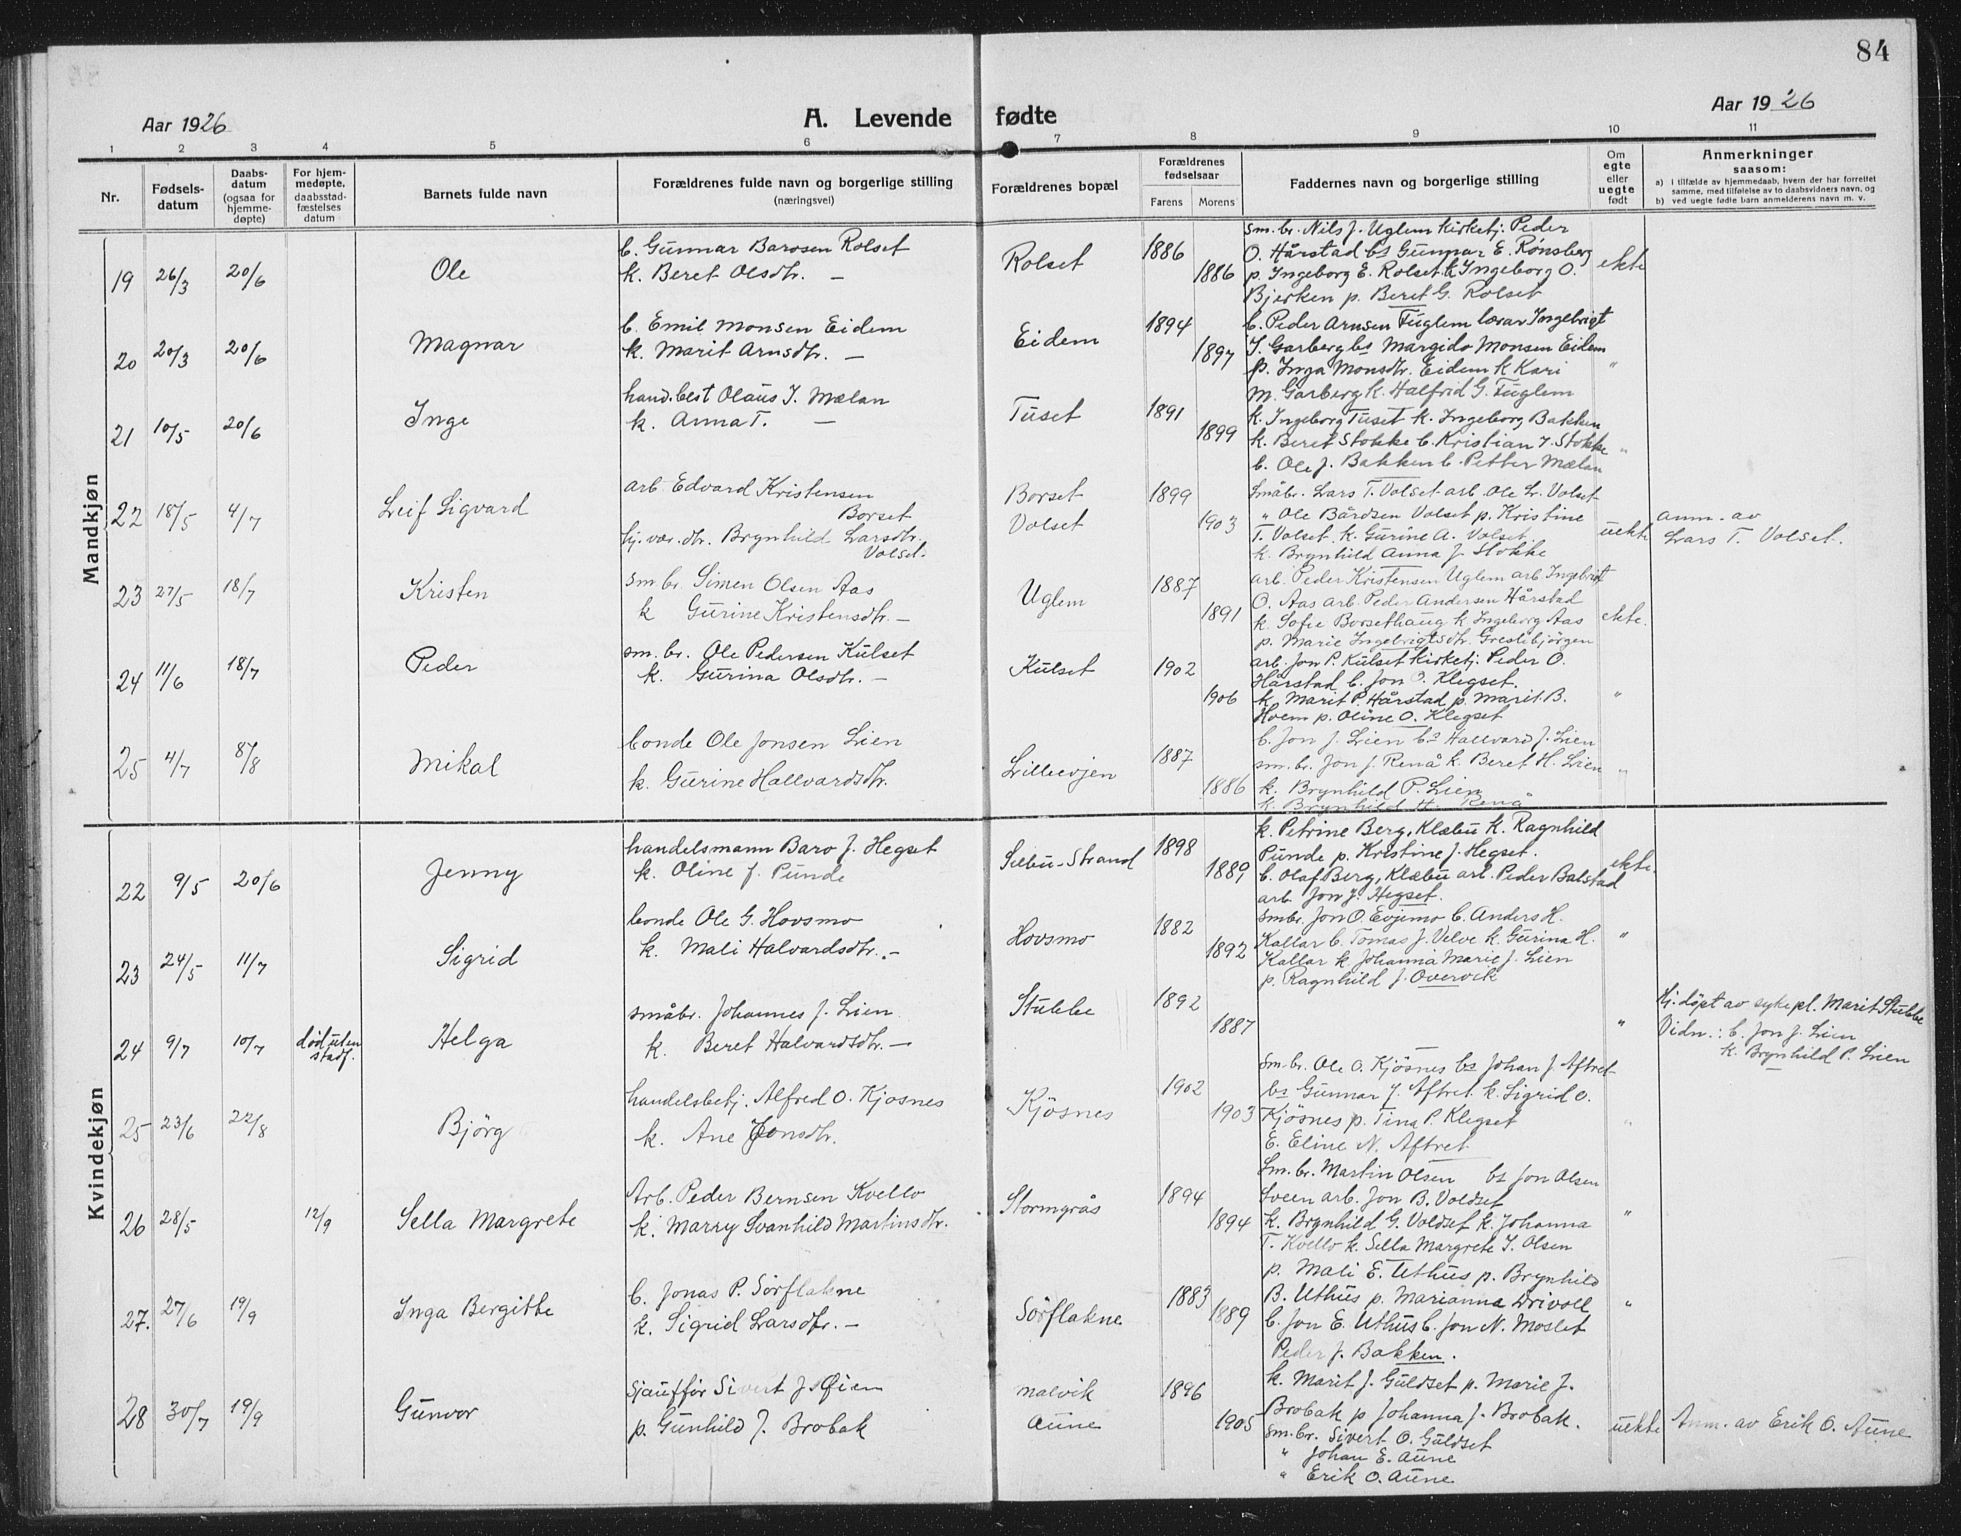 84
Aar 1926
A. Levende fødte
Aar 1926
1 2 3 4 5 6 7 8 9 10 11
Nr.
Fødsels-
datum
Daabs-
datum
(ogsaa for
hjemme-
døpte)
For hjem-
medøpte,
daabsstad-
fæstelses
datum
Barnets fulde navn
Forældrenes fulde navn og borgerlige stilling
(næringsvei)
Forældrenes bopæl
Forældrenes
fødselsaar
Farens Morens
Faddernes navn og borgerlige stilling
Om
egte
eller
uegte
født
Anmerkninger
saasom:
a) I tilfælde av hjemmedaab, hvem der har forrettet
samme, med tilføielse av to daabsvidners navn, og
b) ved uegte fødte barn anmelderens navn m. v.
Mandkjøn
19 26/3 20/6 Ole
b. Gunnar Barosen Rolset
k. Beret Olsdtr. —
Rolset 1886 1886
sm.br. Nils J. Uglem kirketj. Peder
O. Hårstad bs Gunnar E. Rønsberg
p. Ingeborg E. Rolset k Ingeborg O.
Bjerken p. Beret G. Rolset
ekte
20 20/3 20/6 Magnar
b. Emil Monsen Eidem
k. Marit Arnsdtr. —
Eidem 1894 1897
b. Peder Arnsen Fuglem lærar Ingebrigt
J. Garberg bs Margido Monsen Eidem
p. Inga Monsdtr. Eidem k Kari
M. Garberg k. Halfrid G. Fuglem
"
21 10/5 20/6 Inge
hand.best Olaus J. Mælan
k. Anna T. —
Tuset 1891 1899
k. Ingeborg Tuset k. Ingeborg Bakken
k. Beret Stokke b. Kristian J. Stokke
b. Ole J. Bakken b. Petter Mælan
"
22 18/5 4/7 Leif Sigvard
arb. Edvard Kristensen
Borset
hj.vær.dtr. Brynhild Larsdtr.
Volset.
Borset
Volset
1899 1903
Småbr. Lars T. Volset arb. Ole L. Volset
" Ole Bårdsen Volset p. Kristine
T. Volset k. Gurine A. Volset.
k. Brynhild Anna J. Stokke
uekte
anm. av
Lars T. Volset.
23 27/5 18/7 Kristen
sm br. Simen Olsen Aas
k Gurine Kristensdtr. —
Uglem 1887 1891
arb. Peder Kristensen Uglem arb. Ingebrigt
O. Aas arb. Peder Andersen Hårstad
k. Sofie Borsethaug k Ingeborg Aas
p. Marie Ingebrigtsdtr. Greslibjørgen
ekte.
24 11/6 18/7 Peder
sm. br. Ole Pedersen Kulset
k. Gurina Olsdtr. —
Kulset 1902 1906
arb. Jon P. Kulset kirketj. Peder O.
Hårstad b. Jon O. Klegset.
k. Marit P. Hårstad p. Marit B.
Hoem p. Oline O. Klegset
"
25 4/7 8/8 Mikal
bonde Ole Jonsen Lien
k. Gurine Hallvardsdtr.
Lilleevjen 1887 1886
b. Jon J. Lien bs Hallvard J. Lien
sm. br. Jon J. Renå k. Beret H. Lien
k. Brynhild P. Lien
k. Brynhild H. Renå
"
Kvindekjøn
22 9/5 20/6 Jenny
handelsmann Baro J. Hegset
k. Oline J. Punde
Selbu-Strand 1898 1889
k. Petrine Berg, Klæbu k. Ragnhild
Punde p. Kristine J. Hegset.
b. Olaf Berg, Klæbu arb. Peder Balstad
arb. Jon J. Hegset.
ekte.
23 24/5 11/7 Sigrid
bonde Ole G. Hovsmo
k. Mali Halvardsdtr. —
Hovsmo 1882 1892
småbr. Jon O. Evjemo b. Anders H.
Kallar b. Tomas J. Velve k. Gurina H.
Kallar k. Johanna Marie J. Lien
p. Ragnhild J. Overvik
"
24 9/7 10/7 død uten
stadf.
Helga
småbr. Johannes J. Lien
k. Beret Halvardsdtr. —
Stubbe 1892 1887
"
hj. døpt av sykepl. Marit Stubbe
Vidn.: b. Jon J. Lien
k. Brynhild P. Lien
25 23/6 22/8 Bjørg
handelsbetj. Alfred O. Kjøsnes
k. Ane Jonsdtr.
Kjøsnes 1902 1903
sm. br. Ole O. Kjøsnes bs Johan J. Aftret
bs Gunnar J. Aftret k. Sigrid O.
Kjøsnes p. Tina P. Klegset
E. Eline N. Aftret
"
26 28/5 12/9 Sella Margrete
Arb. Peder Bernsen Kvello
k. Marry Svanhild Martinsdtr.
Stormgrås 1894 1894
Sm. br. Martin Olsen bs Jon Olsen
Sveen arb. Jon B. Voldset
k. Brynhild G. Voldset k. Johanna
T. Kvello k. Sella Margrete J. Olsen
"
27. 27/6 19/9 Inga Bergitte
b. Jonas P. Sørflakne
k. Sigrid Larsdtr. —
Sørflakne 1883 1889
p. Mali E. Uthus p. Brynhild
B. Uthus p. Marianna Drivoll
b. Jon E. Uthus b. Jon N. Moslet
Peder J. Bakken.
"
28 30/7 19/9 Gunvor
sjauffør Sivert J. Øien
p. Gunhild J. Brobak
Malvik
Aune
1896 1905
k. Marit J. Guldset p. Marie J.
Brobak p Johanna J. Brobak.
sm. br. Sivert O. Guldset
" Johan E. Aune
" Erik O. Aune
uekte
Anm. av Erik O. Aune